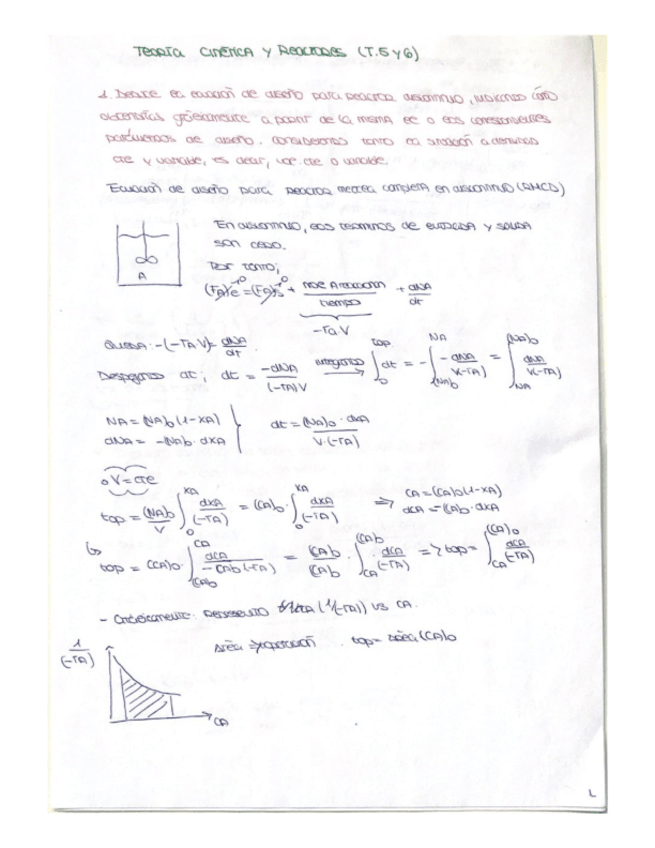 TEORÍA CINÉTICA Y REACTORES (T.5 y 6)
1. Deduce la ecuación de diseño para reactor discontinuo, indicando cómo
obtendrías gráficamente a partir de la misma el o los correspondientes
parámetros de diseño. Considerando tanto la situación a densidad
cte y variable, es decir, vol cte o variable.
Ecuación de diseño para reactor mezcla completa en discontinuo (RMCD)
En discontinuo, los términos de entrada y salida
son cero.
Por tanto;
A
(FA)e = (FA)s + mol A reacción / tiempo + dNA/dt
-rA·V
Queda: -(-rA·V) = dNA/dt
Despejando dt; dt = -dNA/(-rA)V integrando → ∫₀^top dt = -∫_(NA)0^NA dNA/V(-rA) = ∫_NA^(NA)0 dNA/V(-rA)
NA = (NA)0 (1-XA)
dNA = -(NA)0 · dXA
dt = (NA)0 · dXA / V·(-rA)
V = cte
top = (NA)0/V ∫₀^XA dXA/(-rA) = (CA)0 · ∫₀^XA dXA/(-rA) ⇒ CA = (CA)0 (1-XA)
dCA = -(CA)0 · dXA
↳ top = (CA)0 · ∫_(CA)0^CA dCA/-(CA)0 (-rA) = (CA)0/(CA)0 · ∫_CA^(CA)0 dCA/(-rA) => top = ∫_CA^(CA)0 dCA/(-rA)
- Gráficamente: Represento (1/(-rA)) vs CA.
1/(-rA)
Área top = área (CA)0
CA